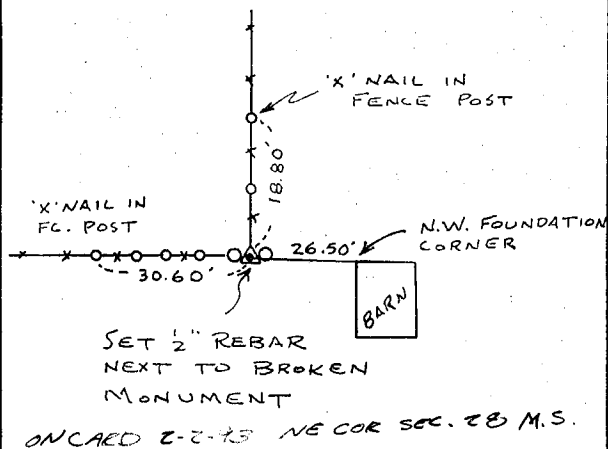 'X' NAIL IN
FENCE POST
18.80
'X' NAIL IN
FC. POST
N.W. FOUNDATION
CORNER
26.50'
30.60'
BARN
SET 1/2" REBAR
NEXT TO BROKEN
MONUMENT
ON CARD 2-2- NE COR SEC. 28 M.S.